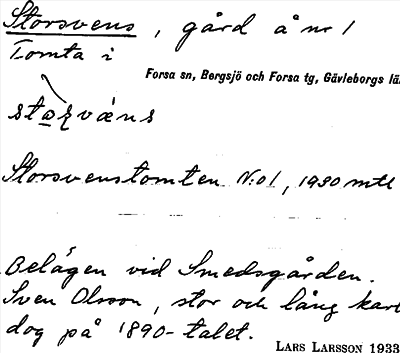 Storsvens, gård å nr 1
Tomta i
Forsa sn, Bergsjö och Forsa tg, Gävleborgs lä
Storsvenstomten N:o 1, 1930 mtl
Belägen vid Smedsgården.
Sven Olsson, stor och lång karl
dog på 1890-talet.
LARS LARSSON 1933